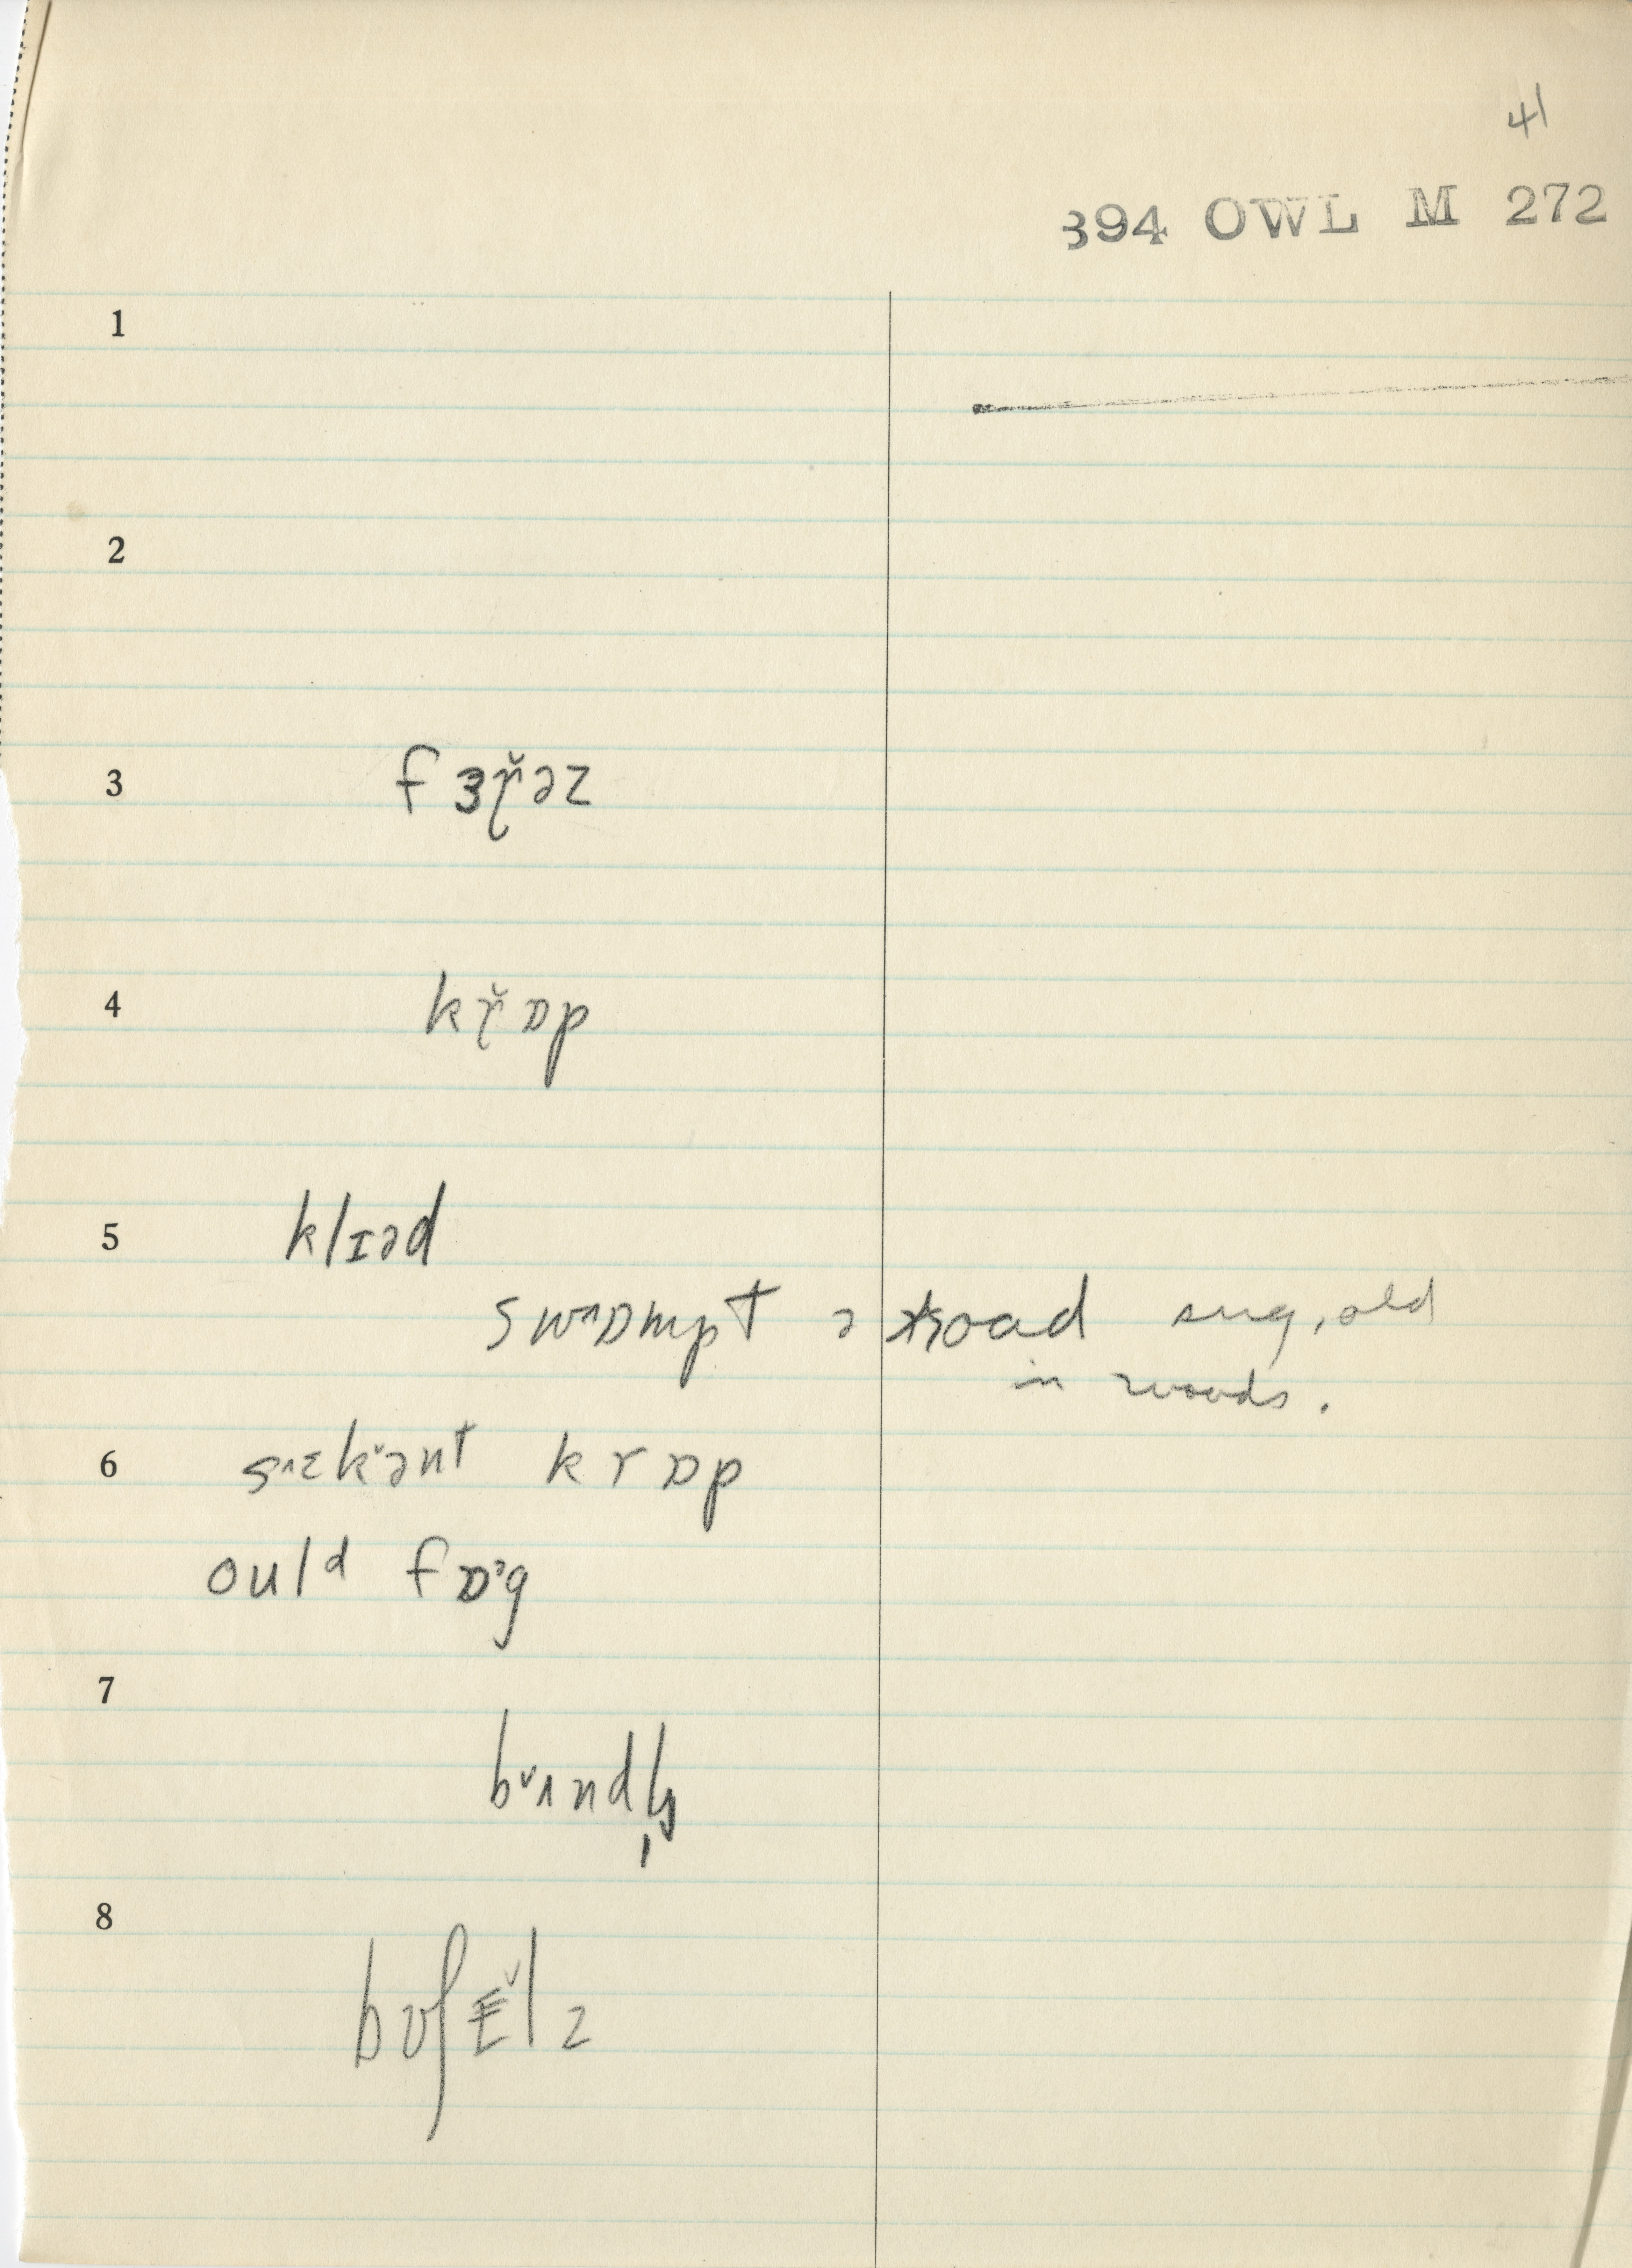 41
394 OWL M 272
1
2
3 fɜɽ̆əz
4 kɽ̆ɒp
5 klɪəd
swᴧɒmpt ə road sug, old
in woods.
6 sᴧɛkˇənt krɒp
ould fɒˀg
7
bˇʌndl̩z
8
bʊʃɛˇlz